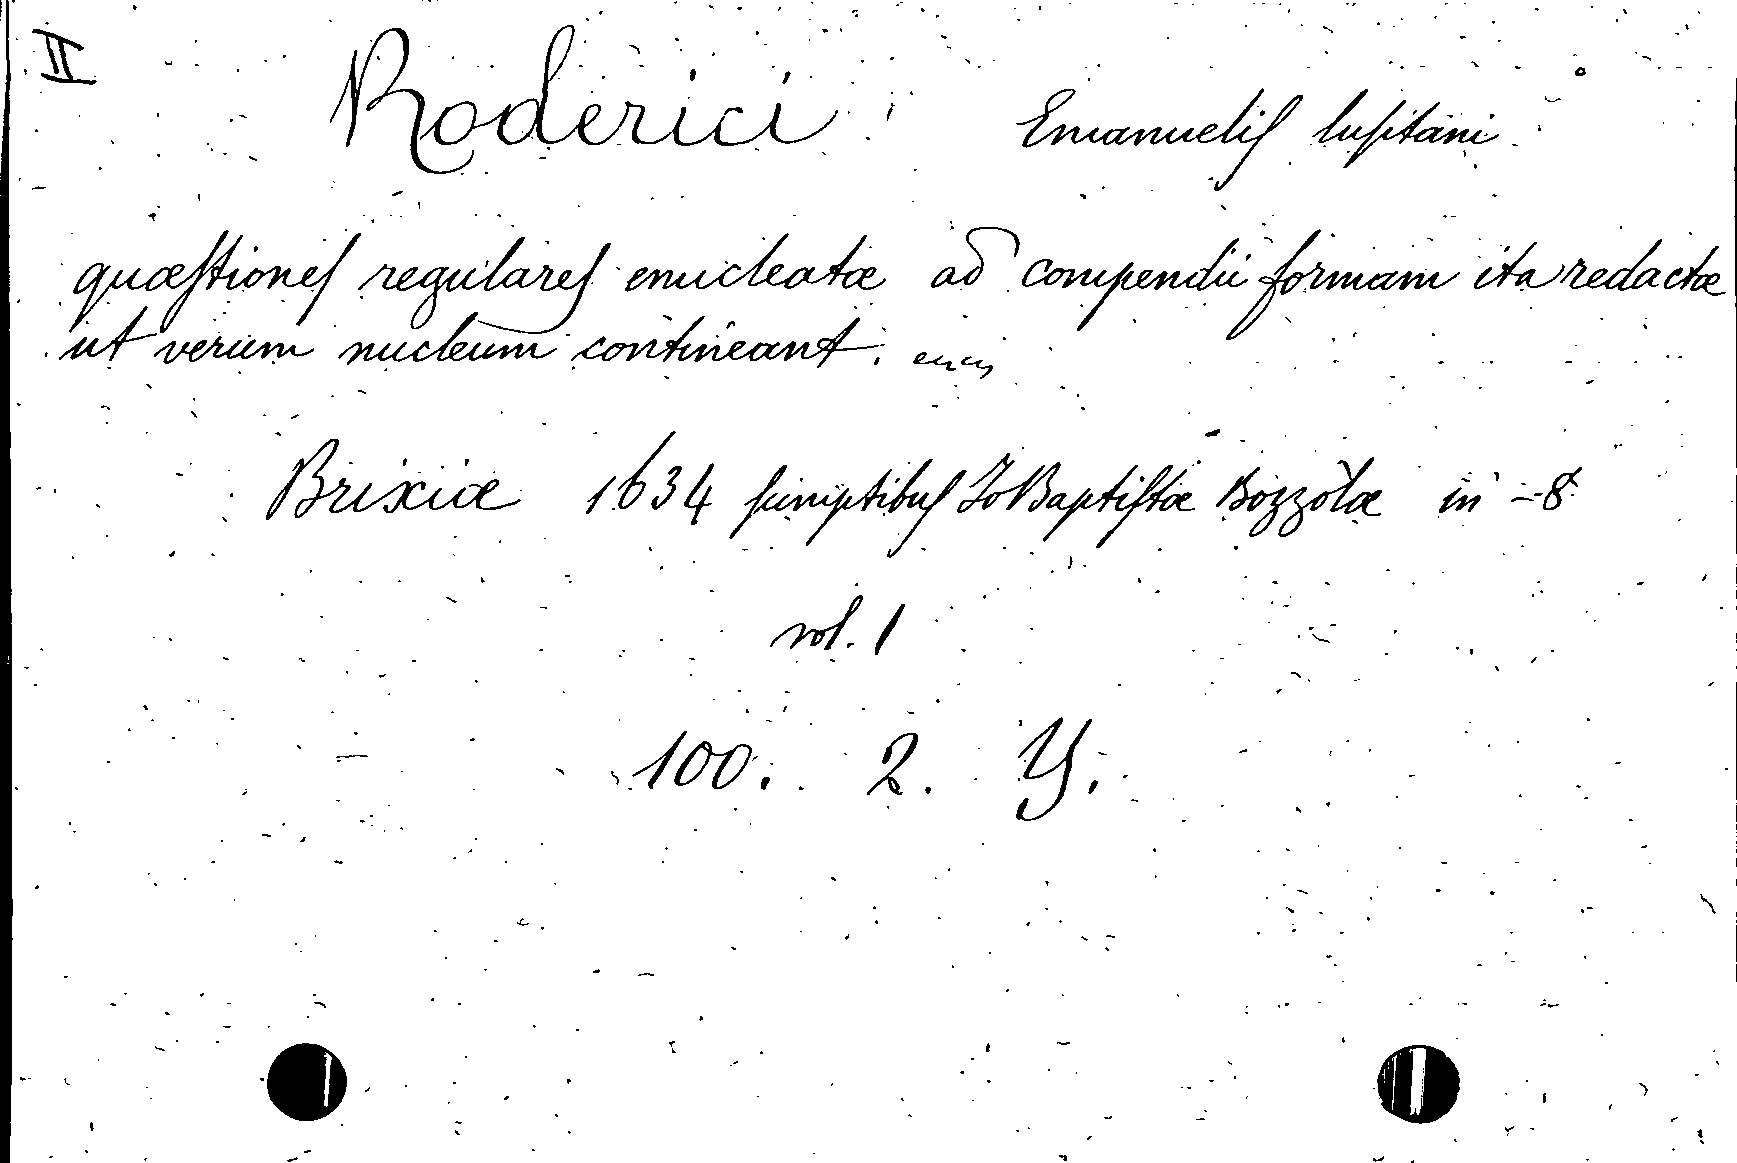 II
Roderici Emanueliſ luſitani
quæſtioneſ regulareſ enucleatæ ad compendii formam ita redactæ
ut verum nucleum contineant.
Brixiæ 1634 ſumptibuſ Jo Baptiſtæ Bozzolæ in -8
vol. 1
100. 2. Y.